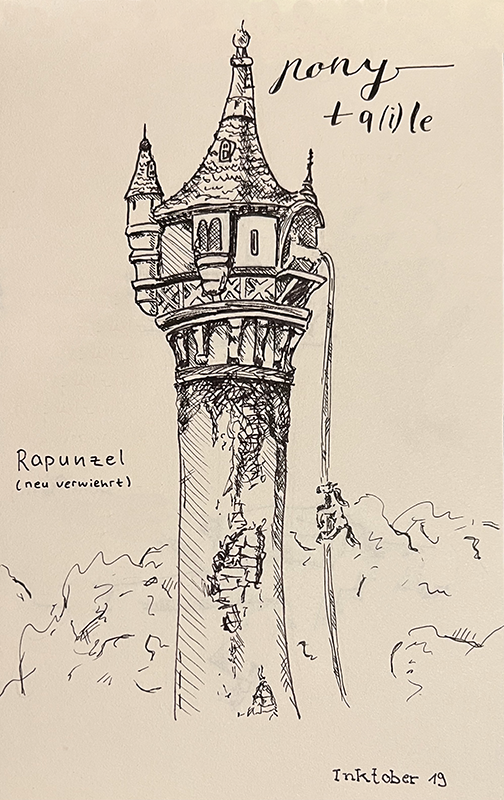 pony
ta(i)le
Rapunzel
(neu verwiehrt)
Inktober 19